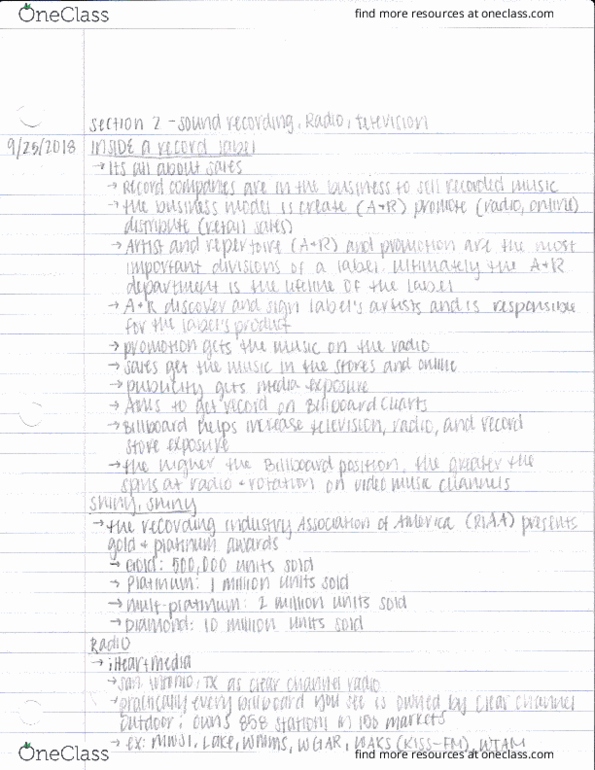 OneClass
find more resources at oneclass.com
section 2 - sound recording, Radio, television
9/25/2018 INSIDE a record label
→ Its all about sales
→ Record companies are in the business to sell recorded music
→ the business model is create (A+R) promote (radio, online)
distribute (retail sales)
→ Artist and repertoire (A+R) and promotion are the most
important divisions of a label. ultimately the A+R
department is the lifeline of the label
→ A+R discover and sign label's artists and is responsible
for the label's product
→ promotion gets the music on the radio
→ sales get the music in the stores and online
→ publicity gets media exposure
→ Aims to get record on Billboard Charts
→ Billboard helps increase television, radio, and record
store exposure
→ the higher the Billboard position, the greater the
spins at radio + rotation on video music channels
shiny, shiny
→ the recording industry Association of America (RIAA) presents
gold + platinum awards
→ Gold: 500,000 units sold
→ Platinum: 1 million units sold
→ mult-platinum: 2 million units sold
→ Diamond: 10 million units sold
RADIO
→ iHeartmedia
→ san Antonio, TX as clear channel radio
→ practically every billboard you see is owned by clear channel
outdoor; owns 858 stations in 150 markets
→ ex: Lake, WMMS, WGAR, WAKS (KISS-FM), WTAM
OneClass
find more resources at oneclass.com